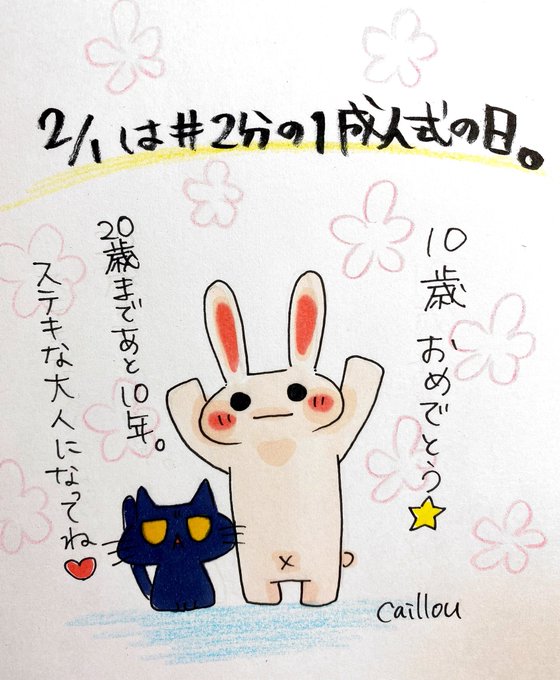 2/1は#2分の1成人式の日。
10歳 おめでとう
20歳まであと10年。
ステキな大人になってね
caillou